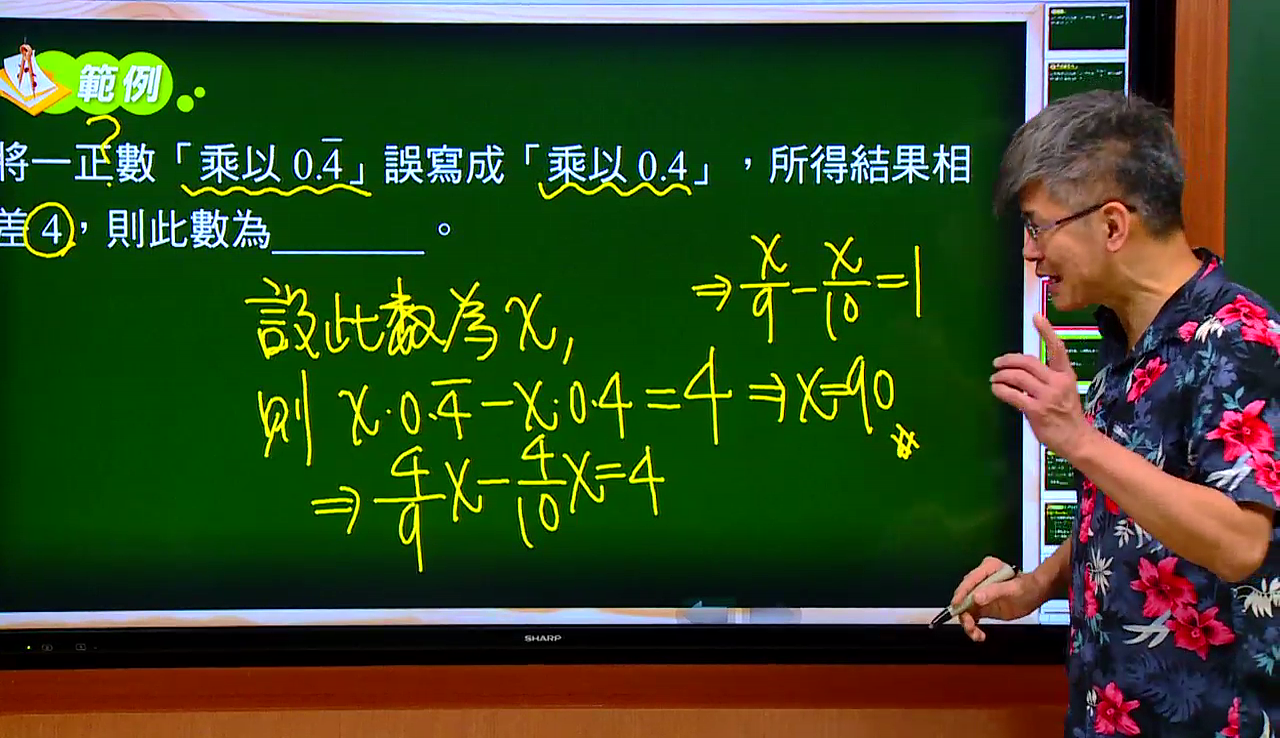 範例
將一正數「乘以 0.4̅」誤寫成「乘以 0.4」，所得結果相
?
差 4，則此數為________。
設此數為 x，
則 x·0.4̅－x·0.4＝4 ⇒ x＝90 #
⇒ 4/9 x－4/10 x＝4
⇒ x/9－x/10＝1
SHARP